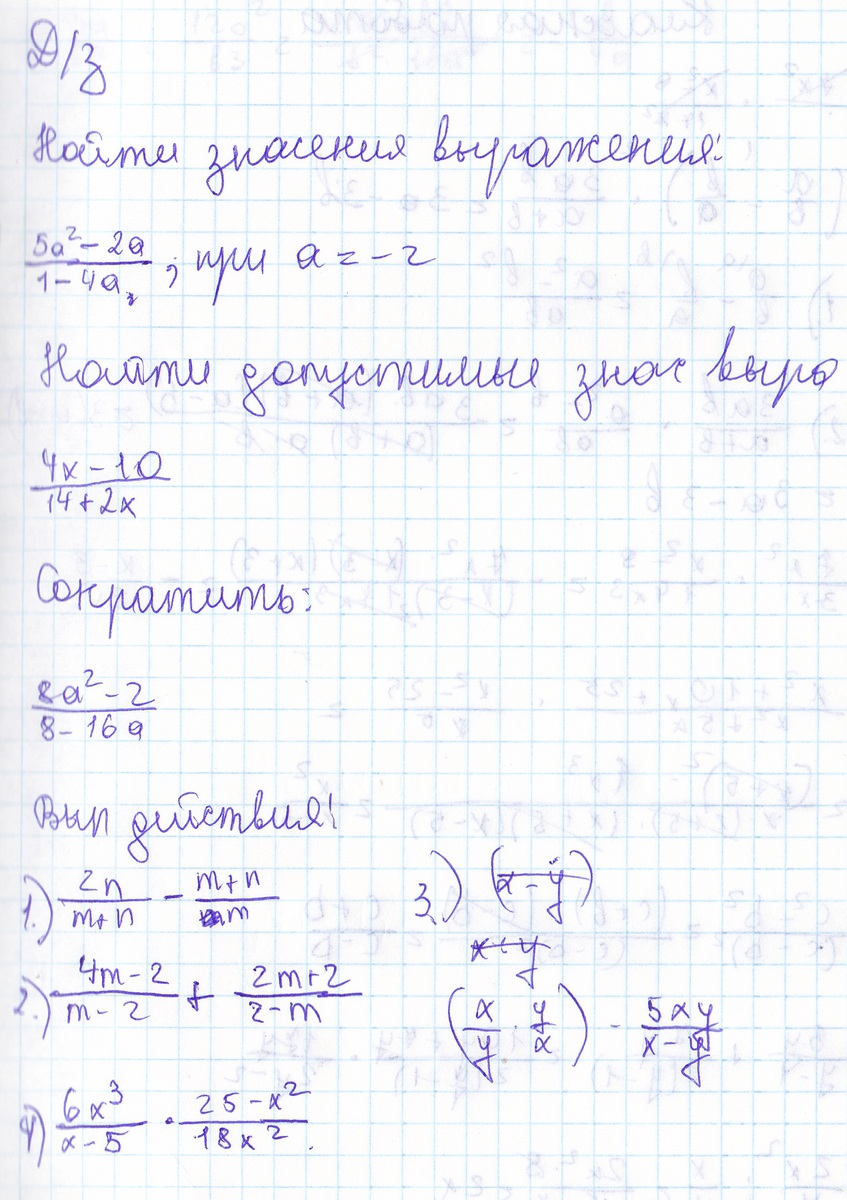 Д/з
Найти значения выражения:
5a² - 2a / 1 - 4a ; при a = -2
Найти допустимые знач выра
4x - 10 / 14 + 2x
Сократить:
8a² - 2 / 8 - 16a
Вып действия!
1.) 2n / m+n - m+n / m
2.) 4m - 2 / m - 2 + 2m+2 / 2 - m
3.) (x - y)
x + y
(x/y · y/x) · 5xy / x - y
4) 6x³ / x - 5 · 25 - x² / 18x².